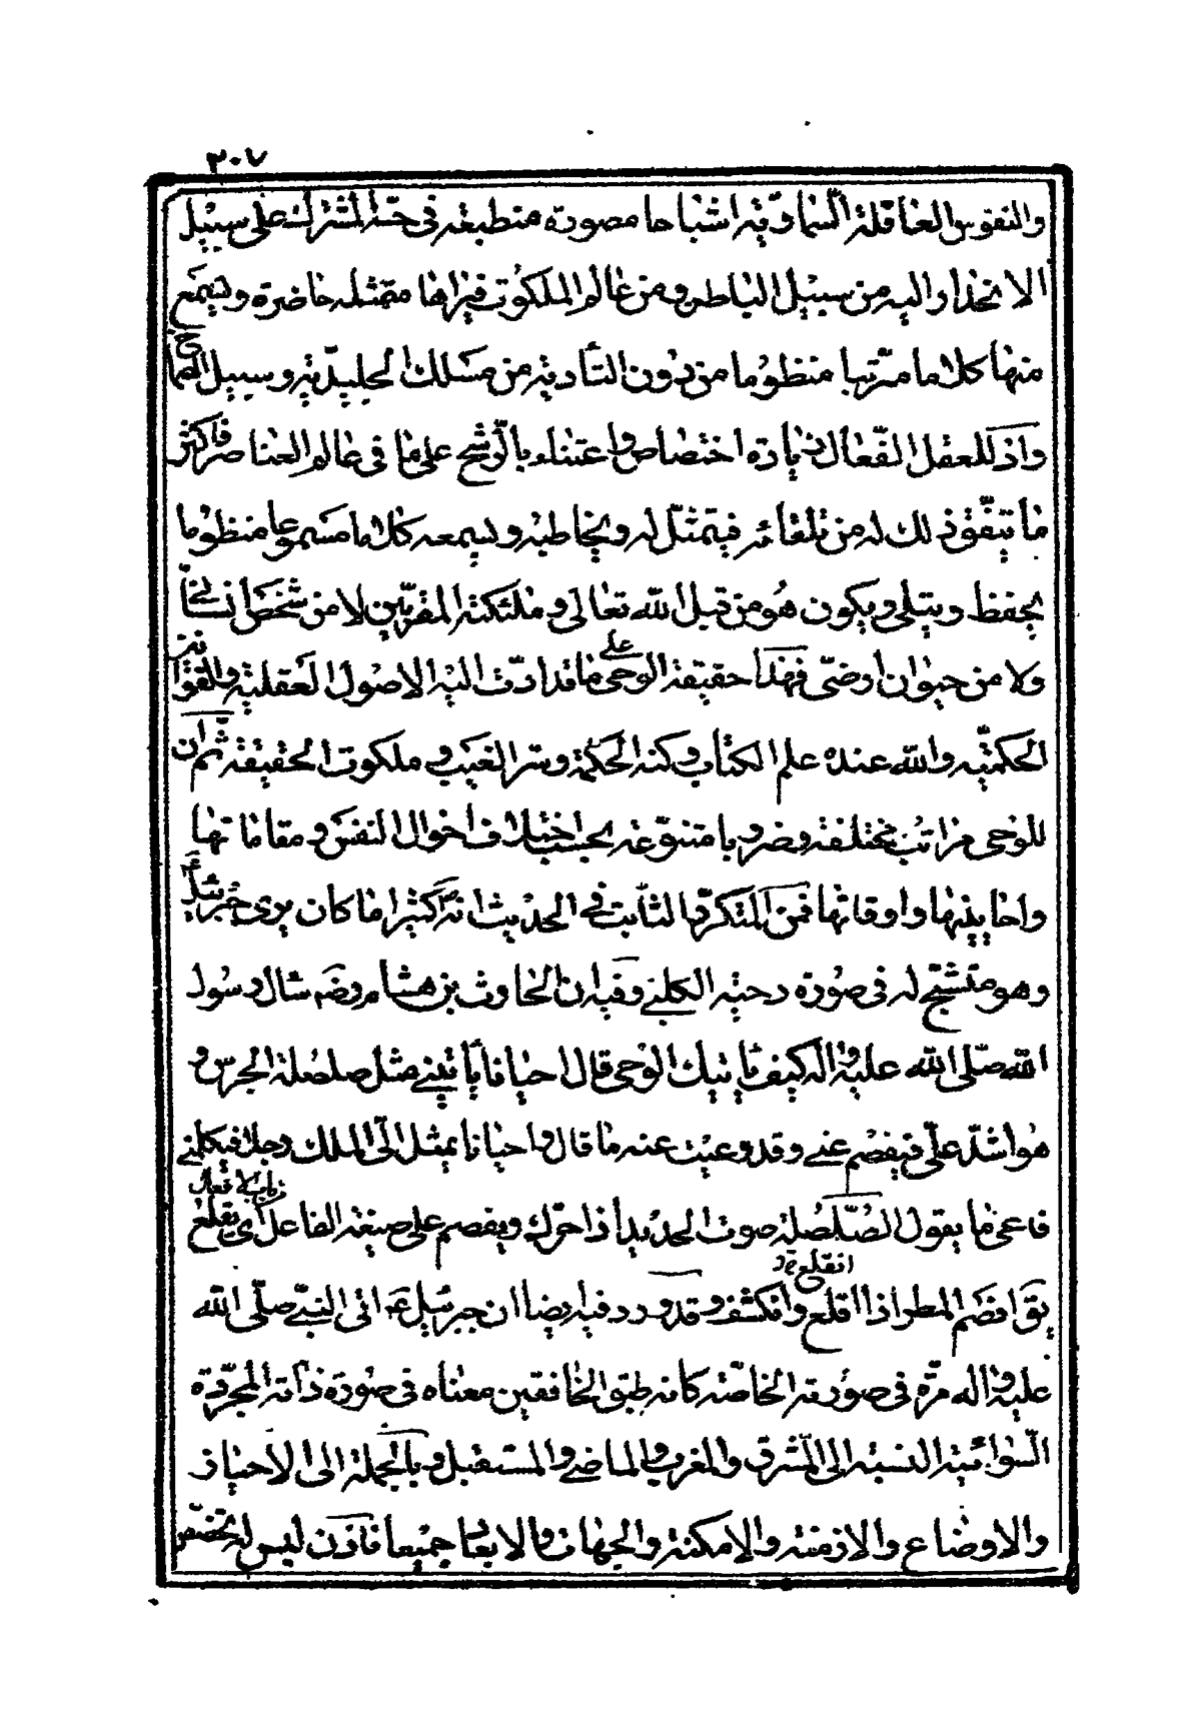 ٣٠٧
والنفوس العاقلة السّماويّة اشباحا مصورة منطبعة فى حسّه المشترك على سبيل
الانحدار اليه من سبيل الباطن ومن عالم الملكوت فيراها متمثله حاضرة ويسمع
منها كلاما مرّتبا منظوما من دون التأدية من مسلك الجليديّة وسبيل الصماخ
واذ للعقل الفّعال زيادة اختصاص واعتناء بالّوشح على ما فى عالم العناصر فاكثر
ما يتّفق ذلك له من تلقائه فيتمثّل له ويخاطبه ويسمعه كلاما مسموعا منظوما
يحفظ ويتلى ويكون هو من قبل الله تعالى وملئكته المقرّبين لا من شخص انسانىّ
ولا من حيوان ارضىّ فهذا حقيقة الوحى على ما قد ادّت اليه الاصول العقلية والقوانين
الحكميّه والله عنده علم الكتاب وكنه الحكمة وسر الغيب وملكوت الحقيقة ثم ان
للوحى مراتب مختلفة وضروبا متنوّعه بحسب اختلاف احوال النفس ومقاماتها
واحايينها واوقاتها فمن المتكرّر الثابت فى الحديث انه ص كثيرا ما كان يرى جبرئيل ع
وهو متشبّح له فى صورة دحية الكلبى وفيه ان الحارث بن هشام رضه سال رسول
الله صلّى الله عليه واله كيف ياتيك الوحى قال احيانا يأتينى مثل صلصلة الجرس و
هو اشدّ علىّ فيفصم عنى وقد وعيت عنه ما قال واحيانا يمثل الىّ الملك رجلا فيكلمنى
فاعى ما يقول الصّلصلة صوت الحديد اذا حرّك ويفصم على صيغة الفاعل اى يقلع
من باب الافعال
يق افصم المطر اذا اقلع وانكشف وقد ورد فيه ايضا ان جبرئيل ع اتى النبىّ صلّى الله
انقلع
عليه واله مرّة فى صورته الخاصّة كانه طبق الخافقين معناه فى صورة ذاته المجرّدة
السّوائية النسبة الى المّشرق والمغرب والماضى والمستقبل وبالجملة الى الاحياز
والاوضاع والازمنة والامكنة والجهات والابعاد جميعا فاذن ليس له تخصّص